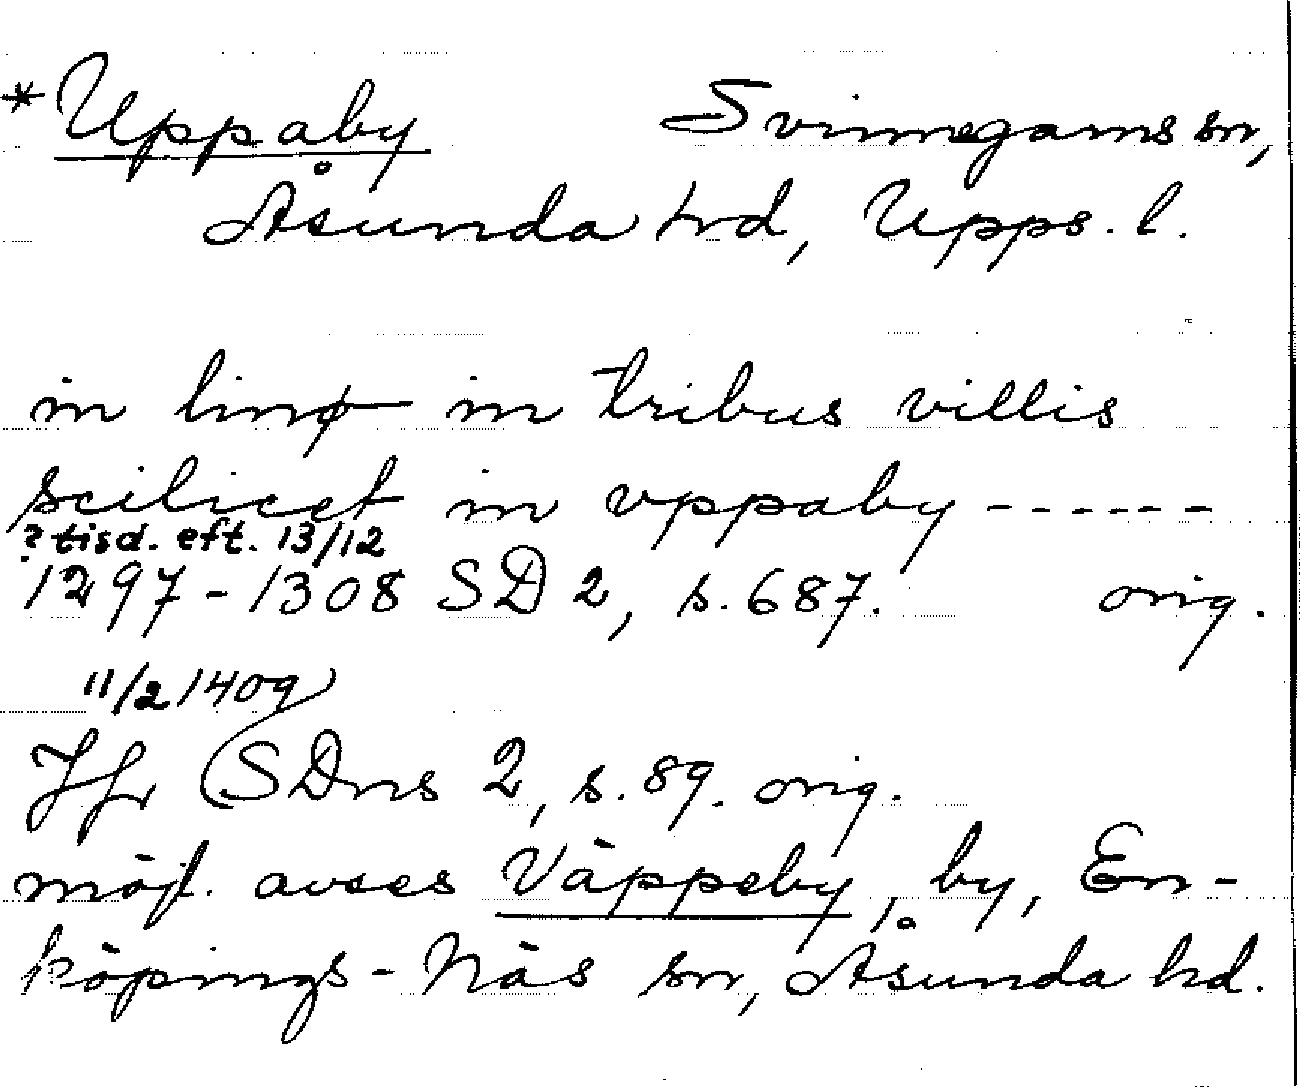 * Uppaby Svinnegarns sn,
Åsunda hrd, Upps. l.
in in tribus villis
scilicet in vppaby ------
? tisd. eft. 13/12
1297-1308 SD 2, s. 687. orig.
11/2 1409
Jfr (SDns 2, s. 89. orig.
möjl. avses Väppeby, by, En-
köpings-Näs sn, Åsunda hd.